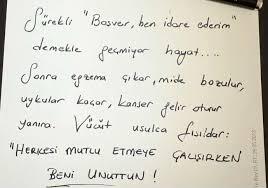 Sürekli "Boşver, ben idare ederim"
demekle geçmiyor hayat....
Sonra egzema çıkar, mide bozulur,
uykular kaçar, kanser gelir oturur
yanına. Vücüt usulca fısıldar:
"HERKESİ MUTLU ETMEYE ÇALIŞIRKEN
BENİ UNUTTUN!